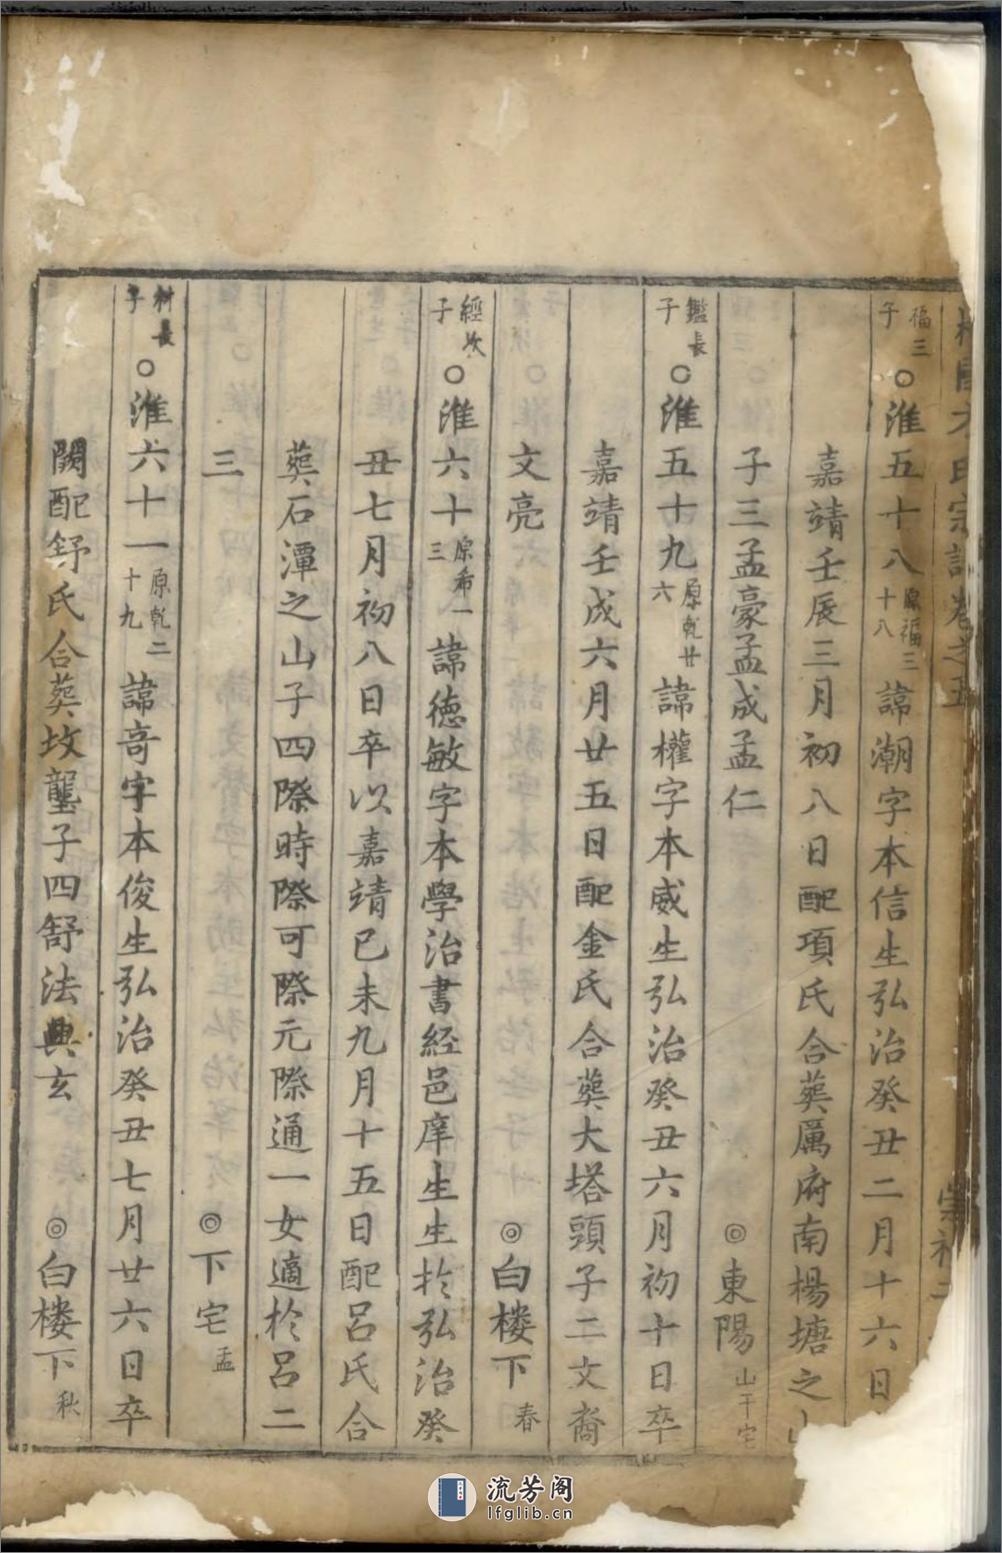 氏宗譜卷之五
福三子○淮五十八原福三十八諱潮字本信生弘治癸丑二月十六日
嘉靖壬辰三月初八日配項氏合葬厲府南楊塘之山
子三孟豪孟成孟仁 ◎東陽山干宅
鑑長子○淮五十九原乾廿六諱權字本威生弘治癸丑六月初十日卒
嘉靖壬戌六月廿五日配金氏合葬大塔頭子二文裔
文亮 ◎白楼下春
經次子○淮六十原希一三諱德敏字本學治書経邑庠生生扵弘治癸
丑七月初八日卒以嘉靖己未九月十五日配呂氏合
葬石潭之山子四際時際可際元際通一女適扵呂二
三 ◎下宅孟
科長子○淮六十一原乾二十九諱竒字本俊生弘治癸丑七月廿六日卒
闕配舒氏合葬坟壟子四舒法典玄 ◎白楼下秋
流芳阁
lfglib.cn